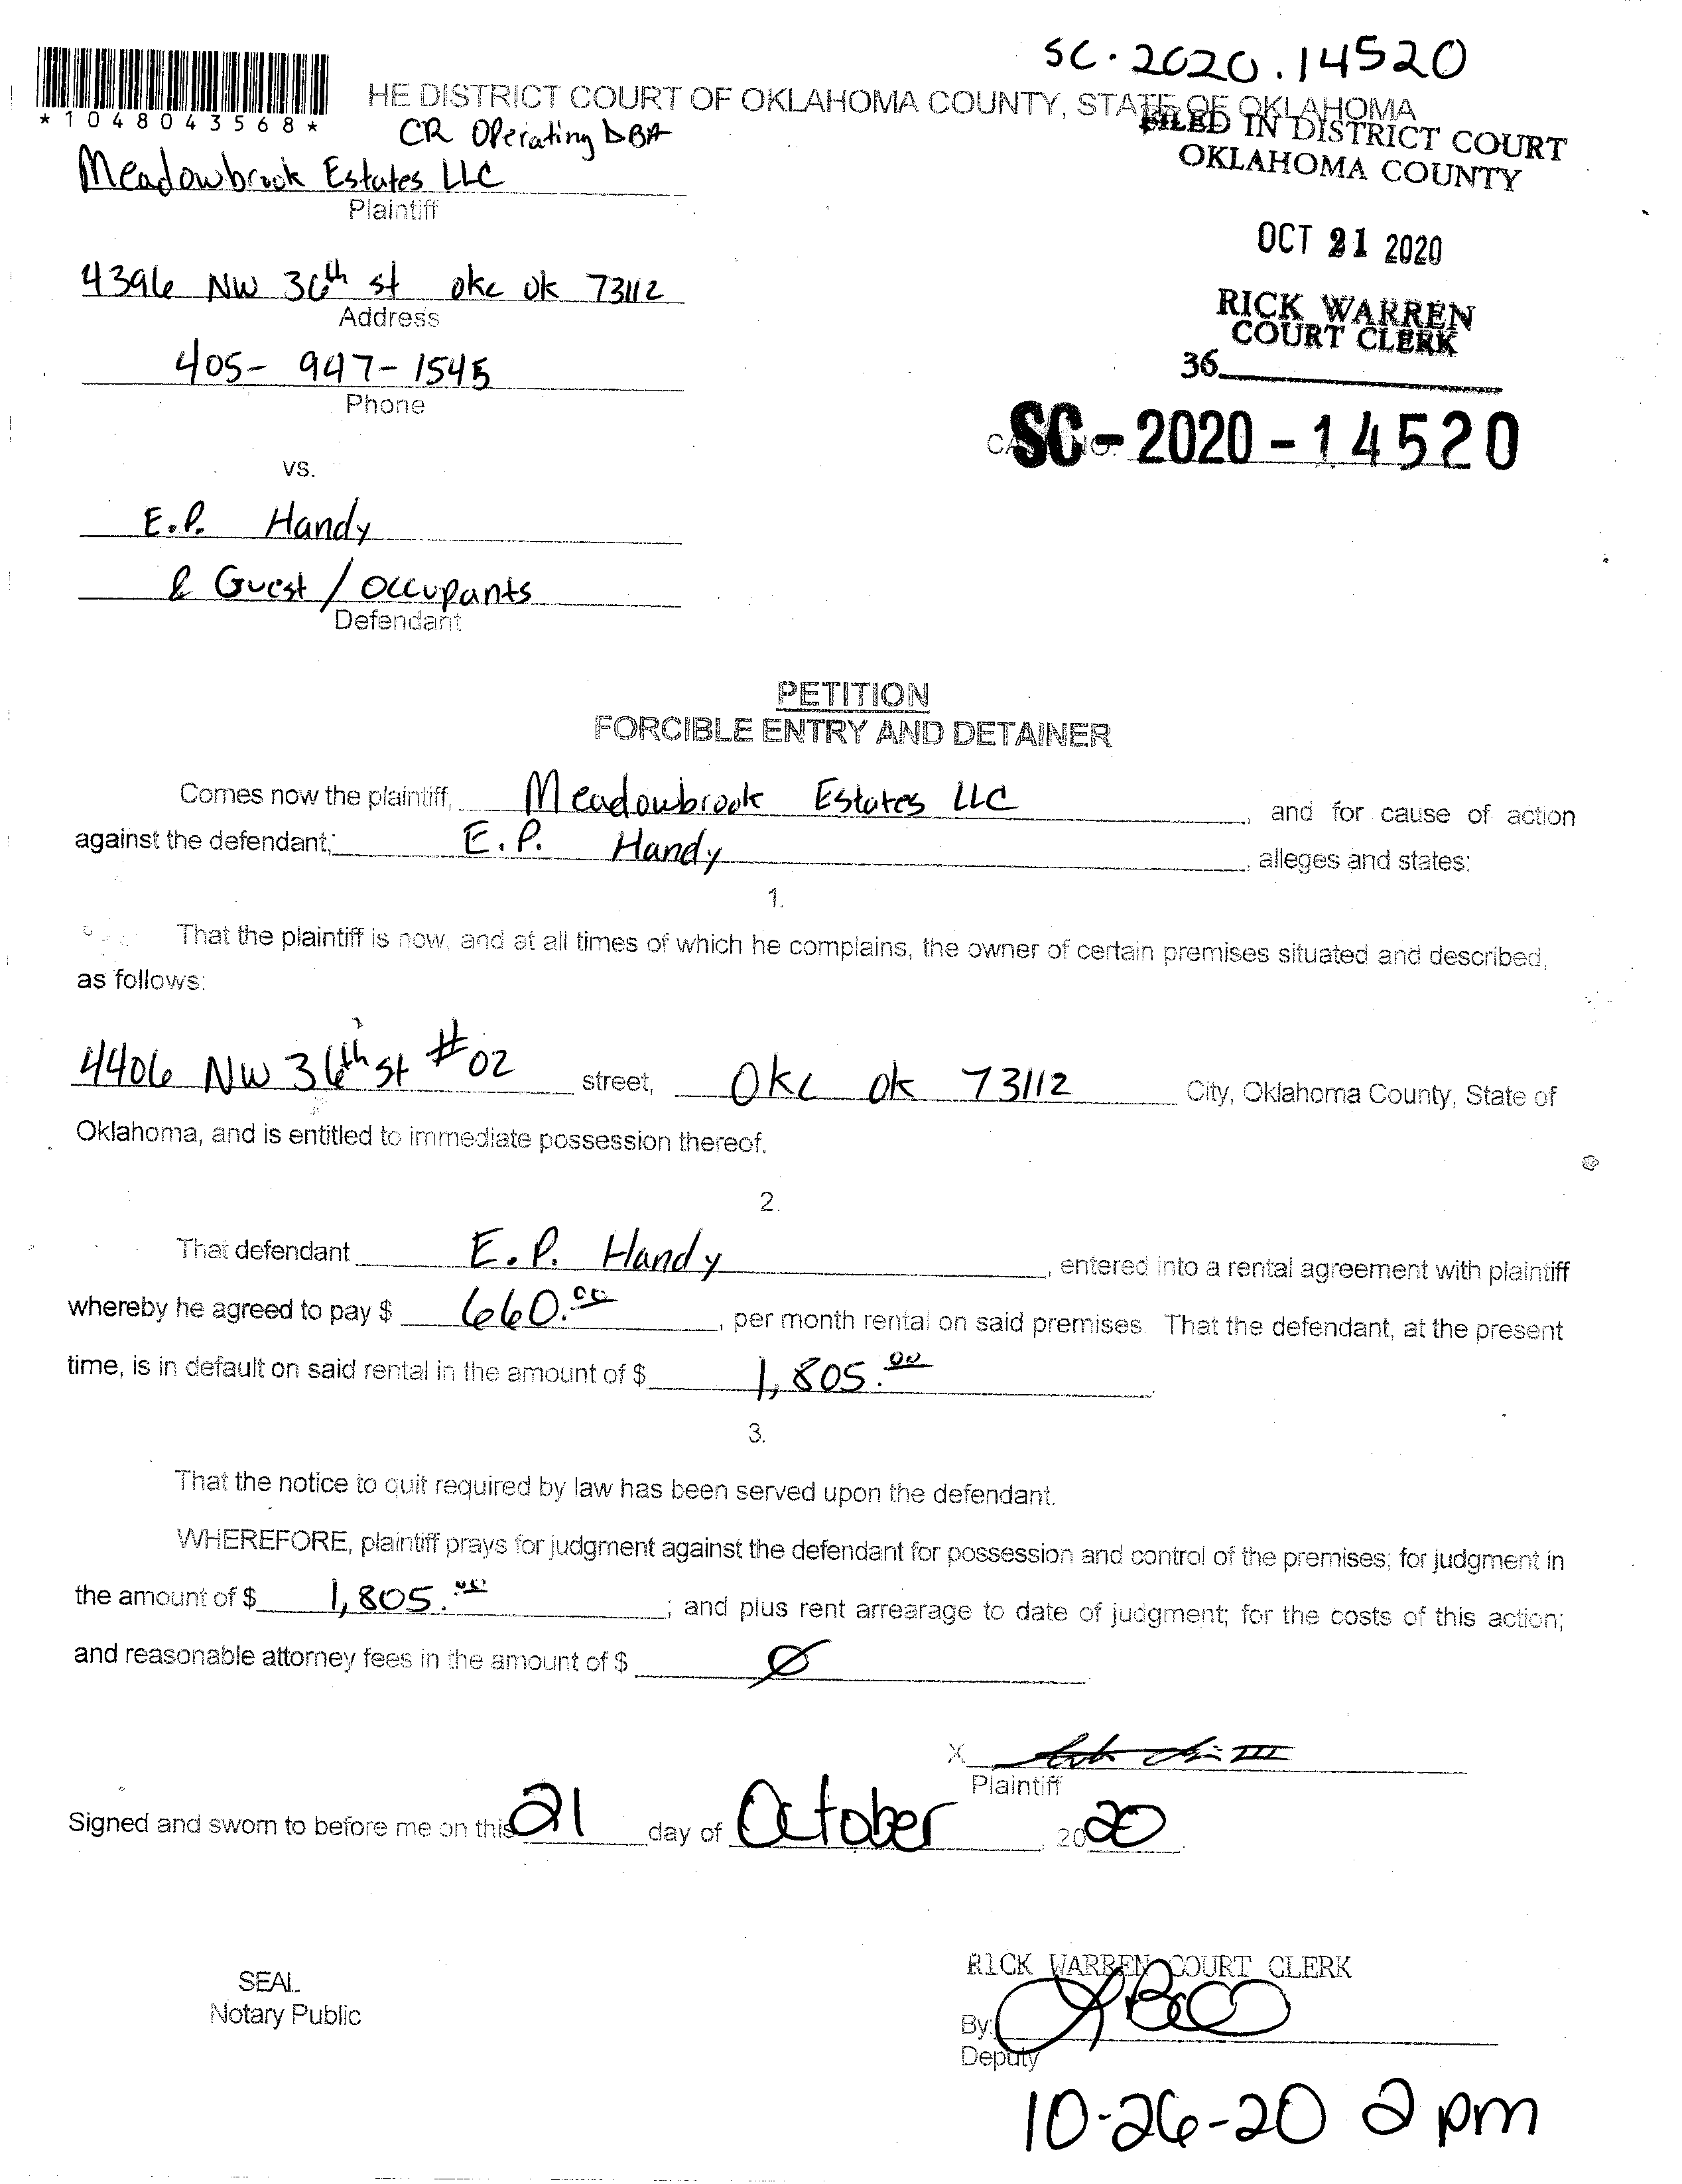 SC.2020.14520
*1048043568*
HE DISTRICT COURT OF OKLAHOMA COUNTY, STATE OF OKLAHOMA
FILED IN DISTRICT COURT
OKLAHOMA COUNTY
CR Operating DBA
Meadowbrook Estates LLC
Plaintiff
OCT 21 2020
4396 NW 36th st okc ok 73112
Address
RICK WARREN
COURT CLERK
405- 947-1545
Phone
36
SC-2020-14520
vs.
E.P. Handy
& Guest / Occupants
Defendant
PETITION
FORCIBLE ENTRY AND DETAINER
Comes now the plaintiff, Meadowbrook Estates LLC, and for cause of action
against the defendant; E.P. Handy, alleges and states:
1.
That the plaintiff is now, and at all times of which he complains, the owner of certain premises situated and described,
as follows:
4406 NW 36th st #02 street, Okc ok 73112 City, Oklahoma County, State of
Oklahoma, and is entitled to immediate possession thereof.
2.
That defendant E.P. Handy, entered into a rental agreement with plaintiff
whereby he agreed to pay $ 660.00, per month rental on said premises. That the defendant, at the present
time, is in default on said rental in the amount of $ 1,805.00.
3.
That the notice to quit required by law has been served upon the defendant.
WHEREFORE, plaintiff prays for judgment against the defendant for possession and control of the premises; for judgment in
the amount of $ 1,805.00; and plus rent arrearage to date of judgment; for the costs of this action;
and reasonable attorney fees in the amount of $ Ø
X III
Plaintiff
Signed and sworn to before me on this 21 day of October, 2020.
RICK WARREN COURT CLERK
SEAL
Notary Public
By:
Deputy
10-26-20 2 pm